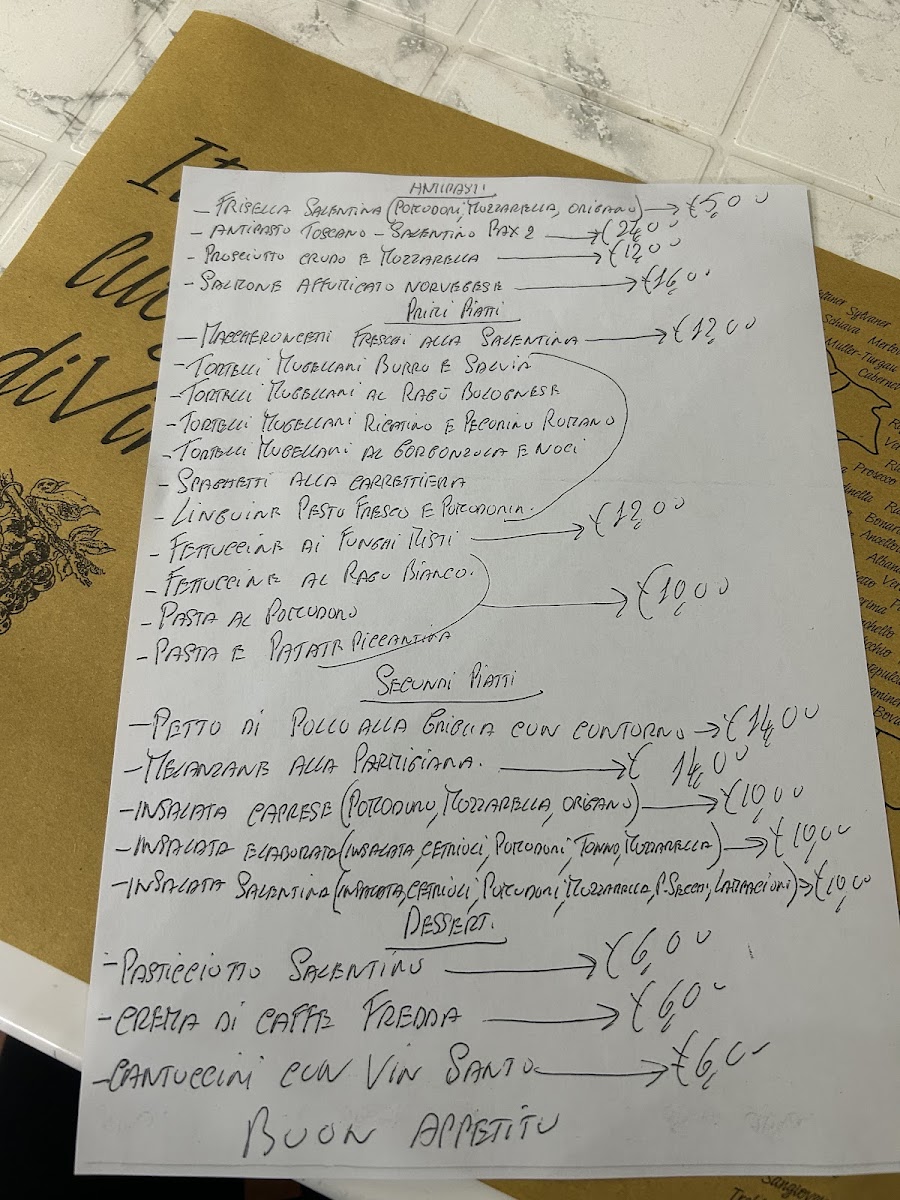 ANTIPASTI
- FRISELLA SALENTINA (POMODORI, MOZZARELLA, ORIGANO) → €5,00
- ANTIPASTO TOSCANO - SALENTINO PAX 2 → €24,00
- PROSCIUTTO CRUDO E MOZZARELLA → €12,00
- SALMONE AFFUMICATO NORVEGESE → €16,00
PRIMI PIATTI
- MACCHERONCETTI FRESCHI ALLA SALENTINA → €12,00
- TORTELLI MUGELLANI BURRO E SALVIA
- TORTELLI MUGELLANI AL RAGÙ BOLOGNESE
- TORTELLI MUGELLANI RIGATINO E PECORINO ROMANO
- TORTELLI MUGELLANI AL GORGONZOLA E NOCI
- SPAGHETTI ALLA CARRETTIERA
- LINGUINE PESTO FRESCO E POMODORINI.
- FETTUCCINE AI FUNGHI MISTI → €12,00
- FETTUCCINE AL RAGÙ BIANCO.
- PASTA AL POMODORO → €10,00
- PASTA E PATATE PICCANTINA
SECONDI PIATTI
- PETTO DI POLLO ALLA GRIGLIA CON CONTORNO → €14,00
- MELANZANE ALLA PARMIGIANA. → € 14,00
- INSALATA CAPRESE (POMODORO, MOZZARELLA, ORIGANO) → €10,00
- INSALATA ELABORATA (INSALATA, CETRIOLI, POMODORI, TONNO, MOZZARELLA) → €10,00
- INSALATA SALENTINA (INSALATA, CETRIOLI, POMODORI, MOZZARELLA, P. SECCHI, LAMPACIONI) → €10,00
DESSERT.
- PASTICCIOTTO SALENTINO → €6,00
- CREMA DI CAFFE FREDDA → €6,00
- CANTUCCINI CON VIN SANTO → €6,00
BUON APPETITO
diVin
Sylvaner
Schiava Merlo
Muller-Turgau
Prosecco